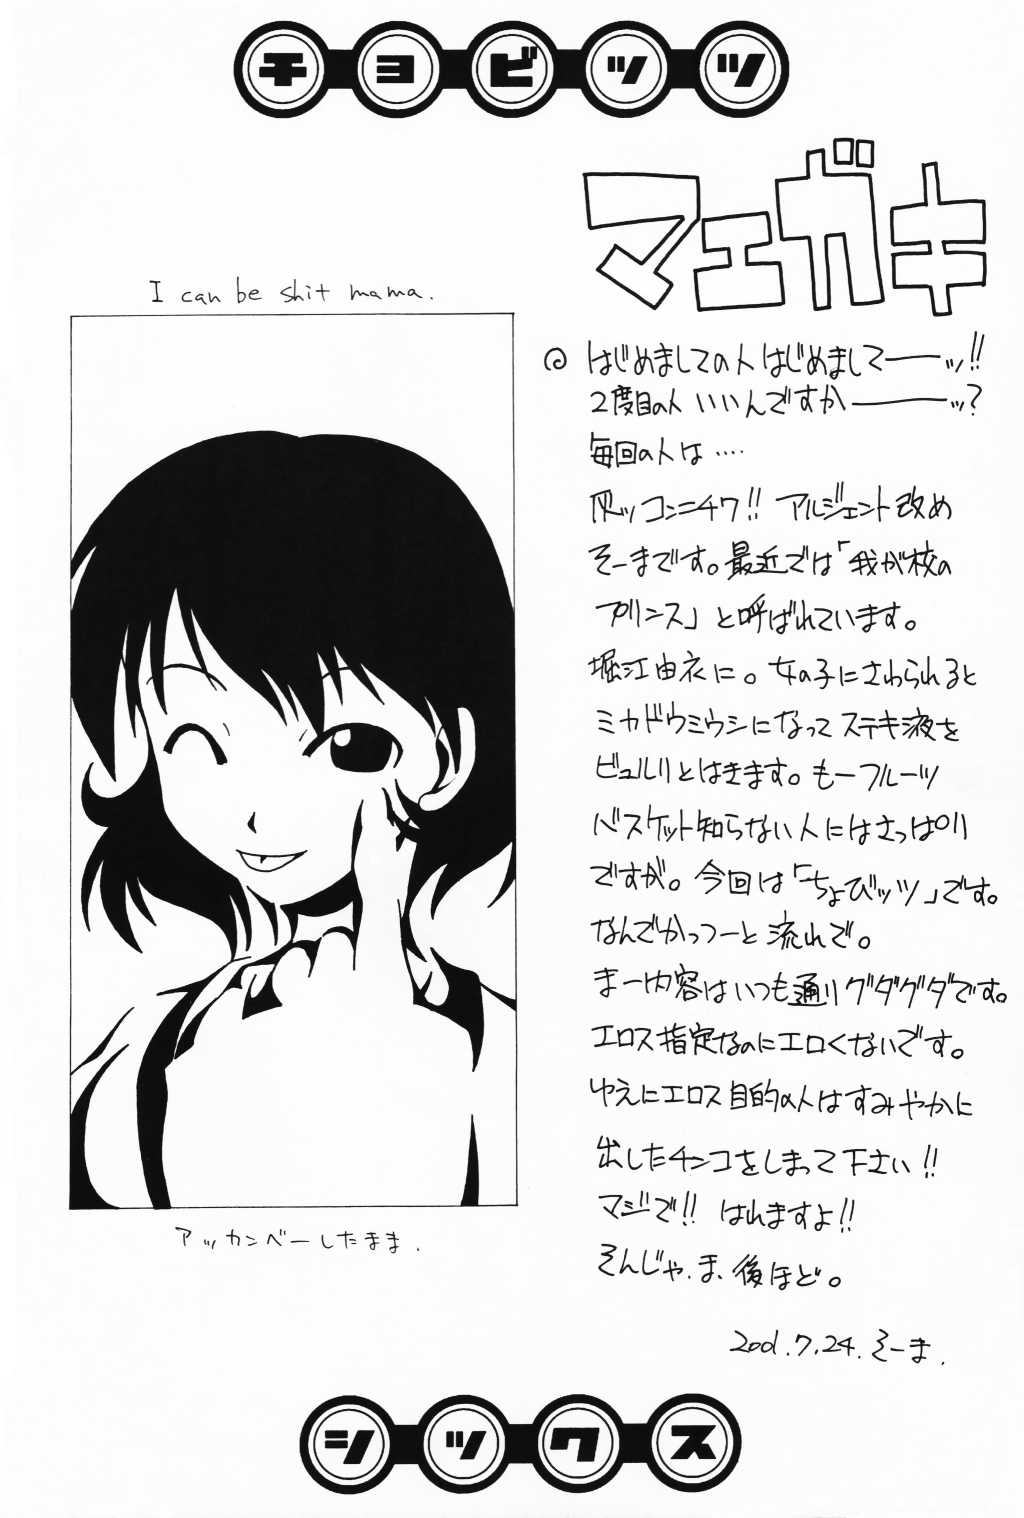 チョビッツ
マエガキ
I can be shit mama.
はじめましての人はじめまして——ッ!!
2度目の人 いいんですか———ッ?
毎回の人は‥‥
灰ッコンニチワ!! アルジェント改め
そーまです。最近では「我が校の
プリンス」と呼ばれています。
堀江由衣に。女の子にさわられると
ミカドウミウシになってステキ液を
ビュルリとはきます。もーフルーツ
バスケット知らない人にはさっぱり
ですが。今回は「ちょびッツ」です。
なんでかっつーと流れで。
まー内容はいつも通りグダグダです。
エロス指定なのにエロくないです。
ゆえにエロス目的の人はすみやかに
出したチンコをしまって下さい!!
マジで!! はれますよ!!
そんじゃ、ま、後ほど。
2001.7.24.そーま.
アッカンベーしたまま.
シックス